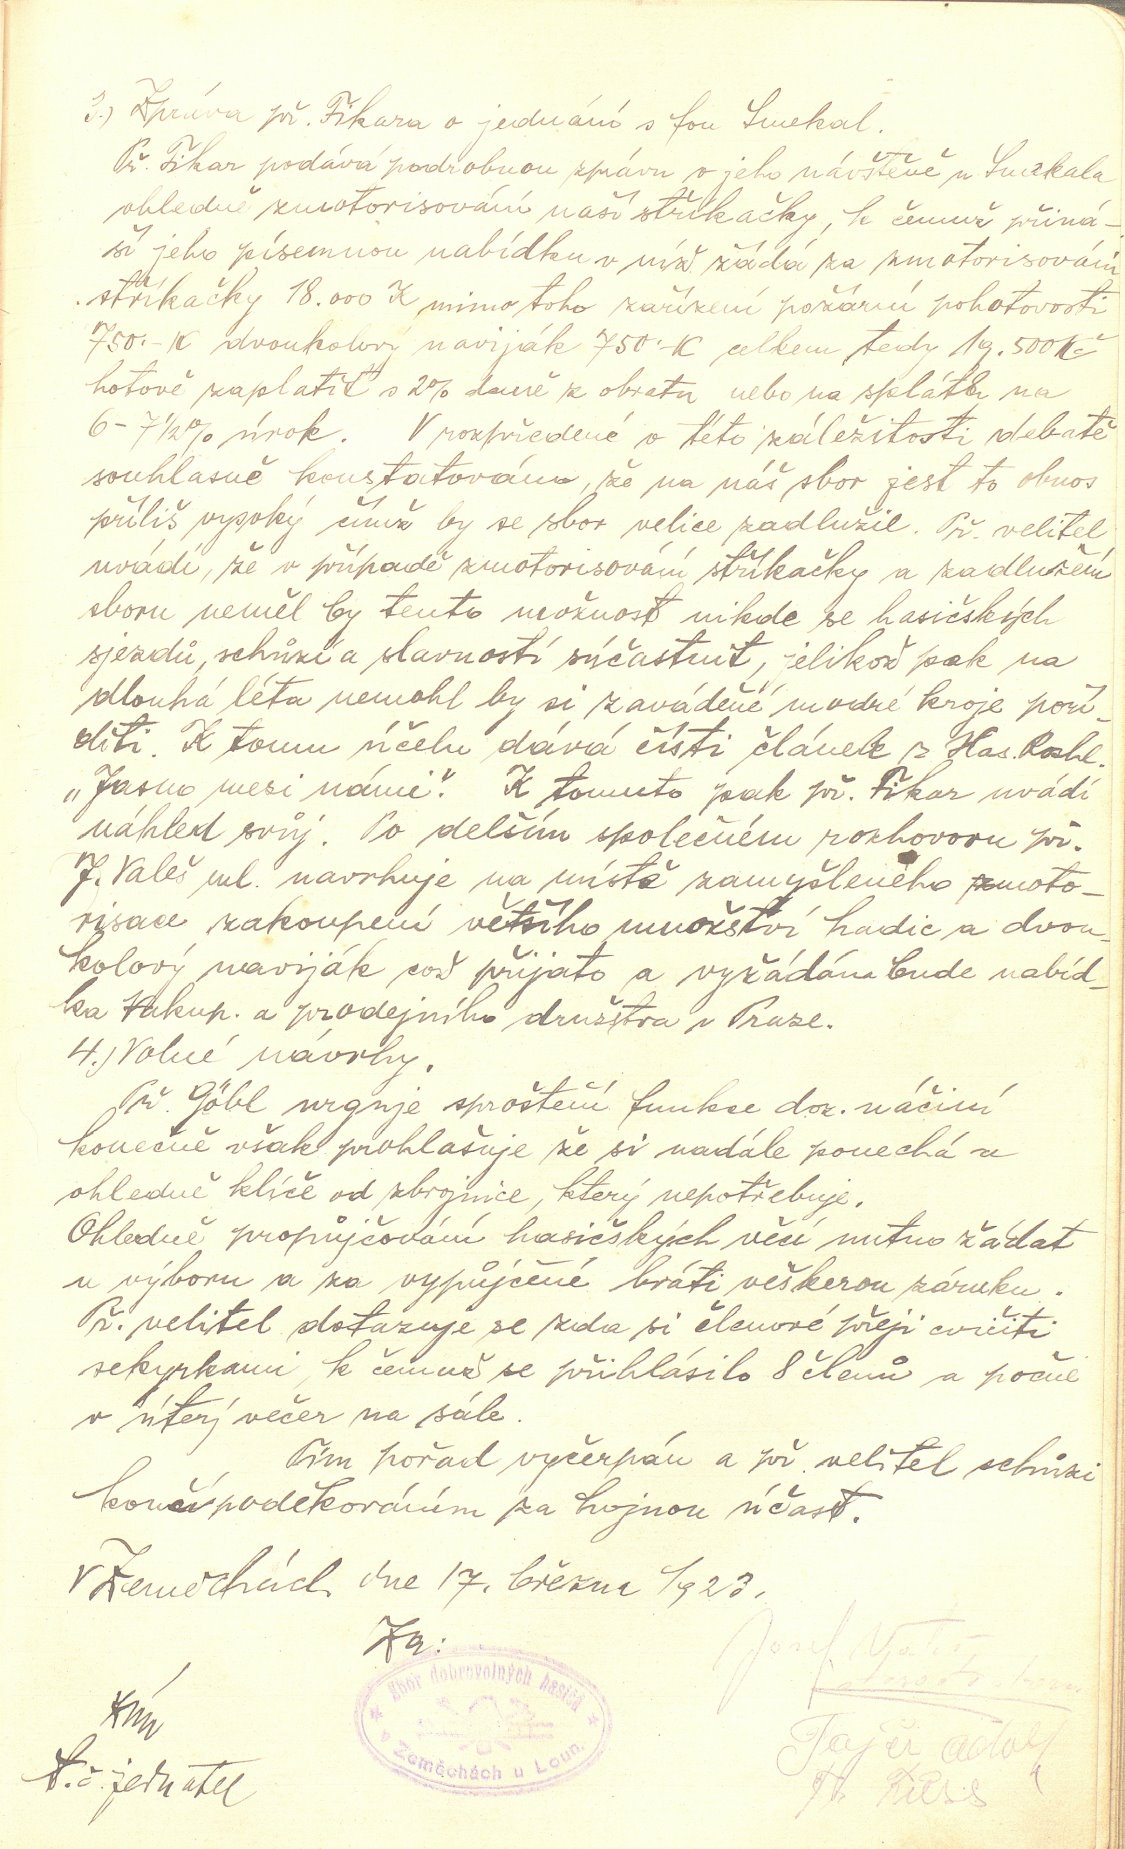 3.) Zpráva př. Fikara o jednání s fou Smekal.
Př. Fikar podává podrobnou zprávu o jeho návštěvě u Smekala
ohledně zmotorisování naší stříkačky, k čemuž přiná-
ší jeho písemnou nabídku v níž žádá za zmotorisování
stříkačky 18.000 K mimo toho zařízení požární pohotovosti
750.- K dvoukolový naviják 750.- K celkem tedy 19.500 Kč
hotově zaplatit s 2% daně z obratu nebo na splátky na
6 - 7 1/2% úrok. V rozpředené o této záležitosti debatě
souhlasně konstatováno, že na náš sbor jest to obnos
příliš vysoký čímž by se sbor velice zadlužil. Př. velitel
uvádí, že v případě zmotorisování stříkačky a zadlužení
sboru neměl by tento možnost nikde se hasičských
sjezdů, schůzí a slavností súčastnit, jelikož pak na
dlouhá léta nemohl by si zaváděné modré kroje poří-
diti. K tomu účelu dává čísti článek z Has. Rozhl.
„Jasno mezi námi". K tomuto pak př. Fikar uvádí
náhled svůj. Po delším společném rozhovoru př.
J. Valeš ml. navrhuje na místě zamyšleného zmoto-
risace zakoupení většího množství hadic a dvou-
kolový naviják což přijato a vyžádána bude nabíd-
ka nákup. a prodejního družstva v Praze.
4.) Volné návrhy.
Př. Göbl urguje sproštění funkce doz. náčiní
konečně však prohlašuje že si nadále ponechá a
ohledně klíče od zbrojnice, který nepotřebuje.
Ohledně propůjčování hasičských věcí nutno žádat
u výboru a za vypůjčené bráti veškerou záruku.
Př. velitel dotazuje se zda si členové přejí cvičiti
sekyrkami k čemuž se přihlásilo 8 členů a počne
v úterý večer na sále.
Tím pořad vyčerpán a př. velitel schůzi
končí poděkováním za hojnou účast.
V Zeměchách dne 17. března 1923.
Za:
Sbor dobrovolných hasičů
v Zeměchách u Loun.
Josef
t.č. jednatel
Adolf